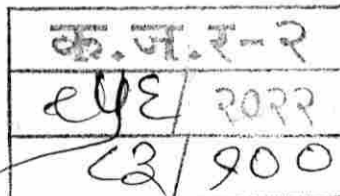 क.ज.र-२
९५६/२०२२
८३/१००